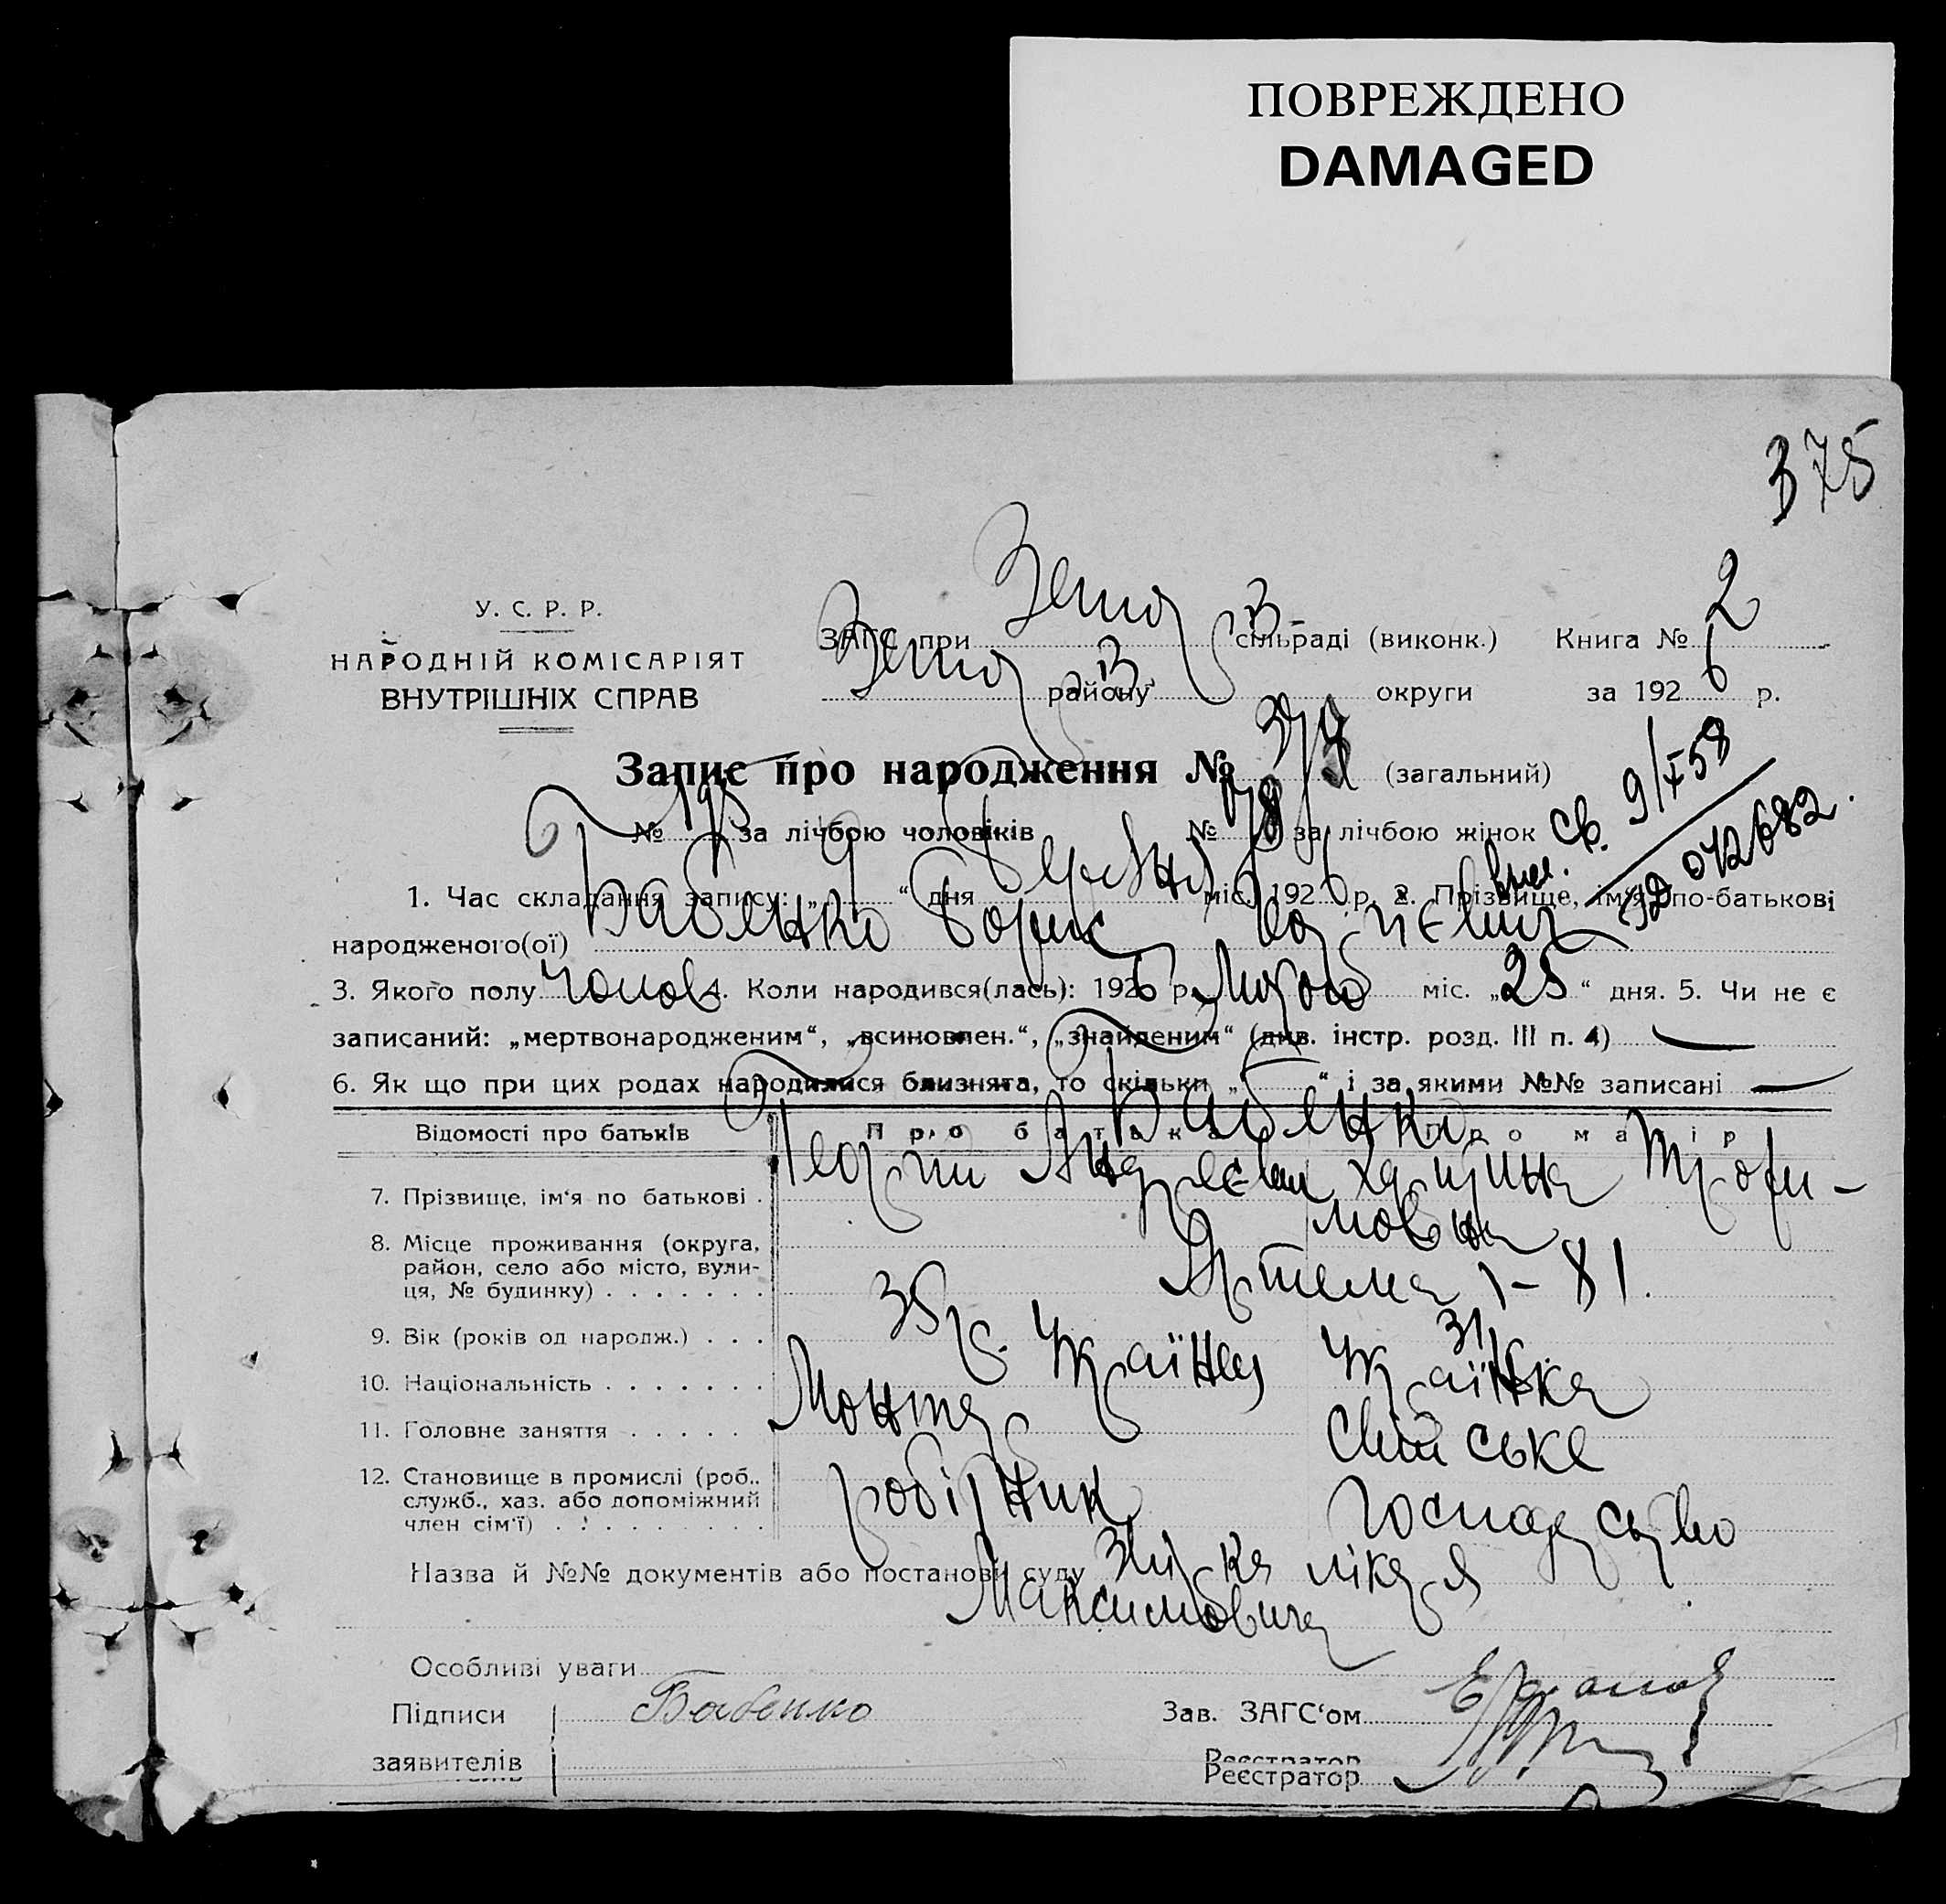 ПОВРЕЖДЕНО
DAMAGED
375
У. С. Р. Р.
НАРОДНІЙ КОМІСАРІЯТ
ВНУТРІШНІХ СПРАВ
ЗАГС при сільраді (виконк.) Книга № 2
району округи за 1926 р.
Запис про народження № (загальний)
№ за лічбою чоловіків № за лічбою жінок
св. 9/X 58
042682.
1. Час складання запису: „ “ дня міс. 1926 р. 2. Прізвище, ім'я, по-батькові
народженого(ої) Бабенко Борис
3. Якого полу Чолов 4. Коли народився(лась): 1926 р. Лютого міс. „25“ дня. 5. Чи не є
записаний: „мертвонародженим“, „всиновлен.“, „знайденим“ (див. інстр. розд. III п. 4) —
6. Як що при цих родах народилися близнята, то скільки „ “ і за якими №№ записані —
Відомості про батьків Про батька Про матір
Бабенко
7. Прізвище, ім'я по батькові . Георгий Андреєвич Харитина Трофи-
мовна
8. Місце проживання (округа,
район, село або місто, вули-
ця, № будинку) . . . . . . . Артема 1-81.
9. Вік (років од народж.) . . . 35р. 31р.
10. Національність . . . . . . . Українец Українка
11. Головне заняття . . . . . Монтер
12. Становище в промислі (роб..
служб., хаз. або допоміжний
член сім'ї) . . . . . . . . робітник господарство
Назва й №№ документів або постанови суду лікаря
Максимовича
Особливі уваги
Підписи Бабенко Зав. ЗАГС'ом
заявителів Реєстратор
Реєстратор